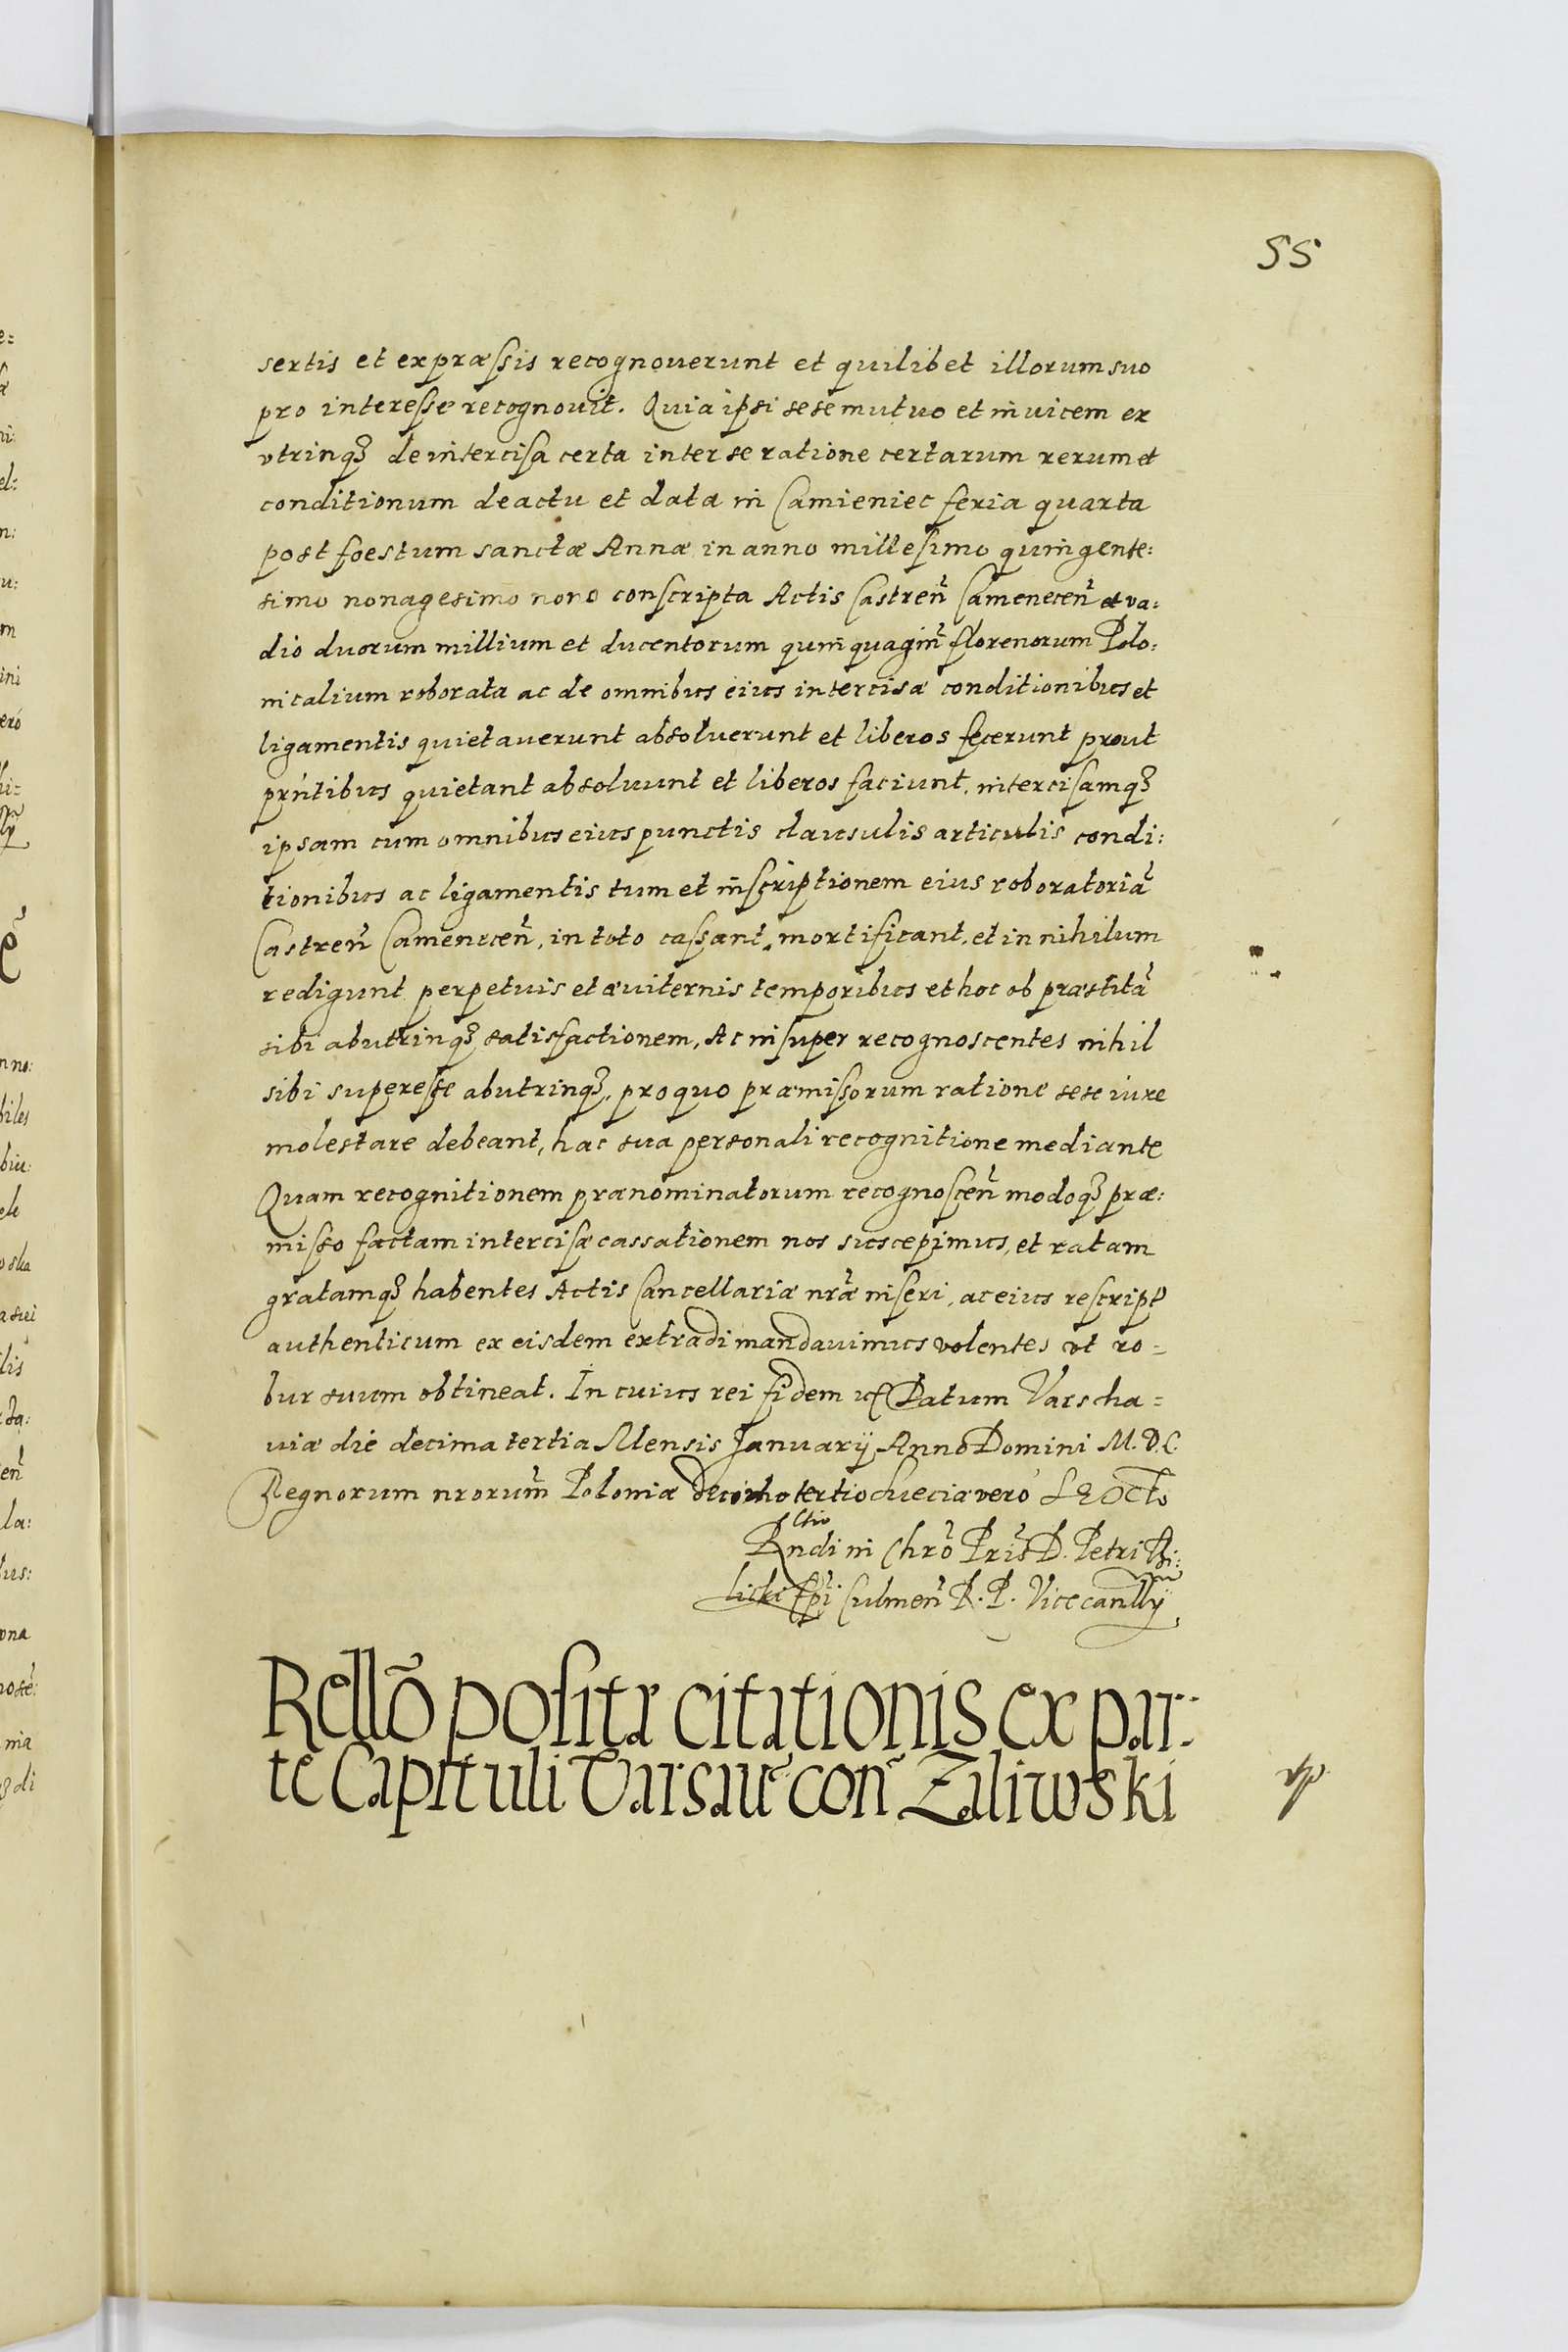 55
sertis et expræssis recognouerunt et quilibet illorum suo
pro interesse recognouit. Quia ipsi sese mutuo et inuicem ex
vtrinqꝫ de intercisa certa inter se ratione certarum rerum et
conditionum de actu et data in Camieniec feria quarta
post foestum sanctæ Annæ in anno millesimo quingente:
simo nonagesimo nono conscripta Actis Castreñ Cameneceñ et va:
dio duorum millium et ducentorum quinquagiñ florenorum Polo:
nicalium roborata ac de omnibus eius intercisæ conditionibus et
ligamentis quietauerunt absoluerunt et liberos fecerunt prout
prńtibus quietant absoluunt et liberos faciunt, intercisamqꝫ
ipsam cum omnibus eius punctis clausulis articulis condi:
tionibus ac ligamentis tum et inscriptionem eius roboratoriã
Castreñ Cameneceñ, in toto cassant, mortificant, et in nihilum
redigunt perpetuis et æuiternis temporibus et hoc ob præstitã
sibi abutrinqꝫ satisfactionem, Ac insuper recognoscentes nihil
sibi superesse abutrinqꝫ, pro quo præmissorum ratione sese iure
molestare debeant, hac sua personali recognitione mediante
Quam recognitionem prænominatorum recognosceñ modoqꝫ præ:
misso factam intercisæ cassationem nos suscepimus, et ratam
gratamqꝫ habentes Actis Cancellariæ nrãe inseri, ac eius rescriptũ
authenticum ex eisdem extradi mandauimus volentes vt ro=
bur suum obtineat. In cuius rei fidem Datum Varscha=
uiæ die decima tertia Mensis Januarij Anno Domini M.D.C.
Regnorum nrorum̃ Poloniæ decimo tertio Sueciæ vero
Rndi in Chrõ Prĩs D. Petri Ti:
licki Epĩ Culmeñ R. P. Vicecanllrij
Rellõ posita citationis ex par:
te Capituli Varsaueñ coñ Zaliwski